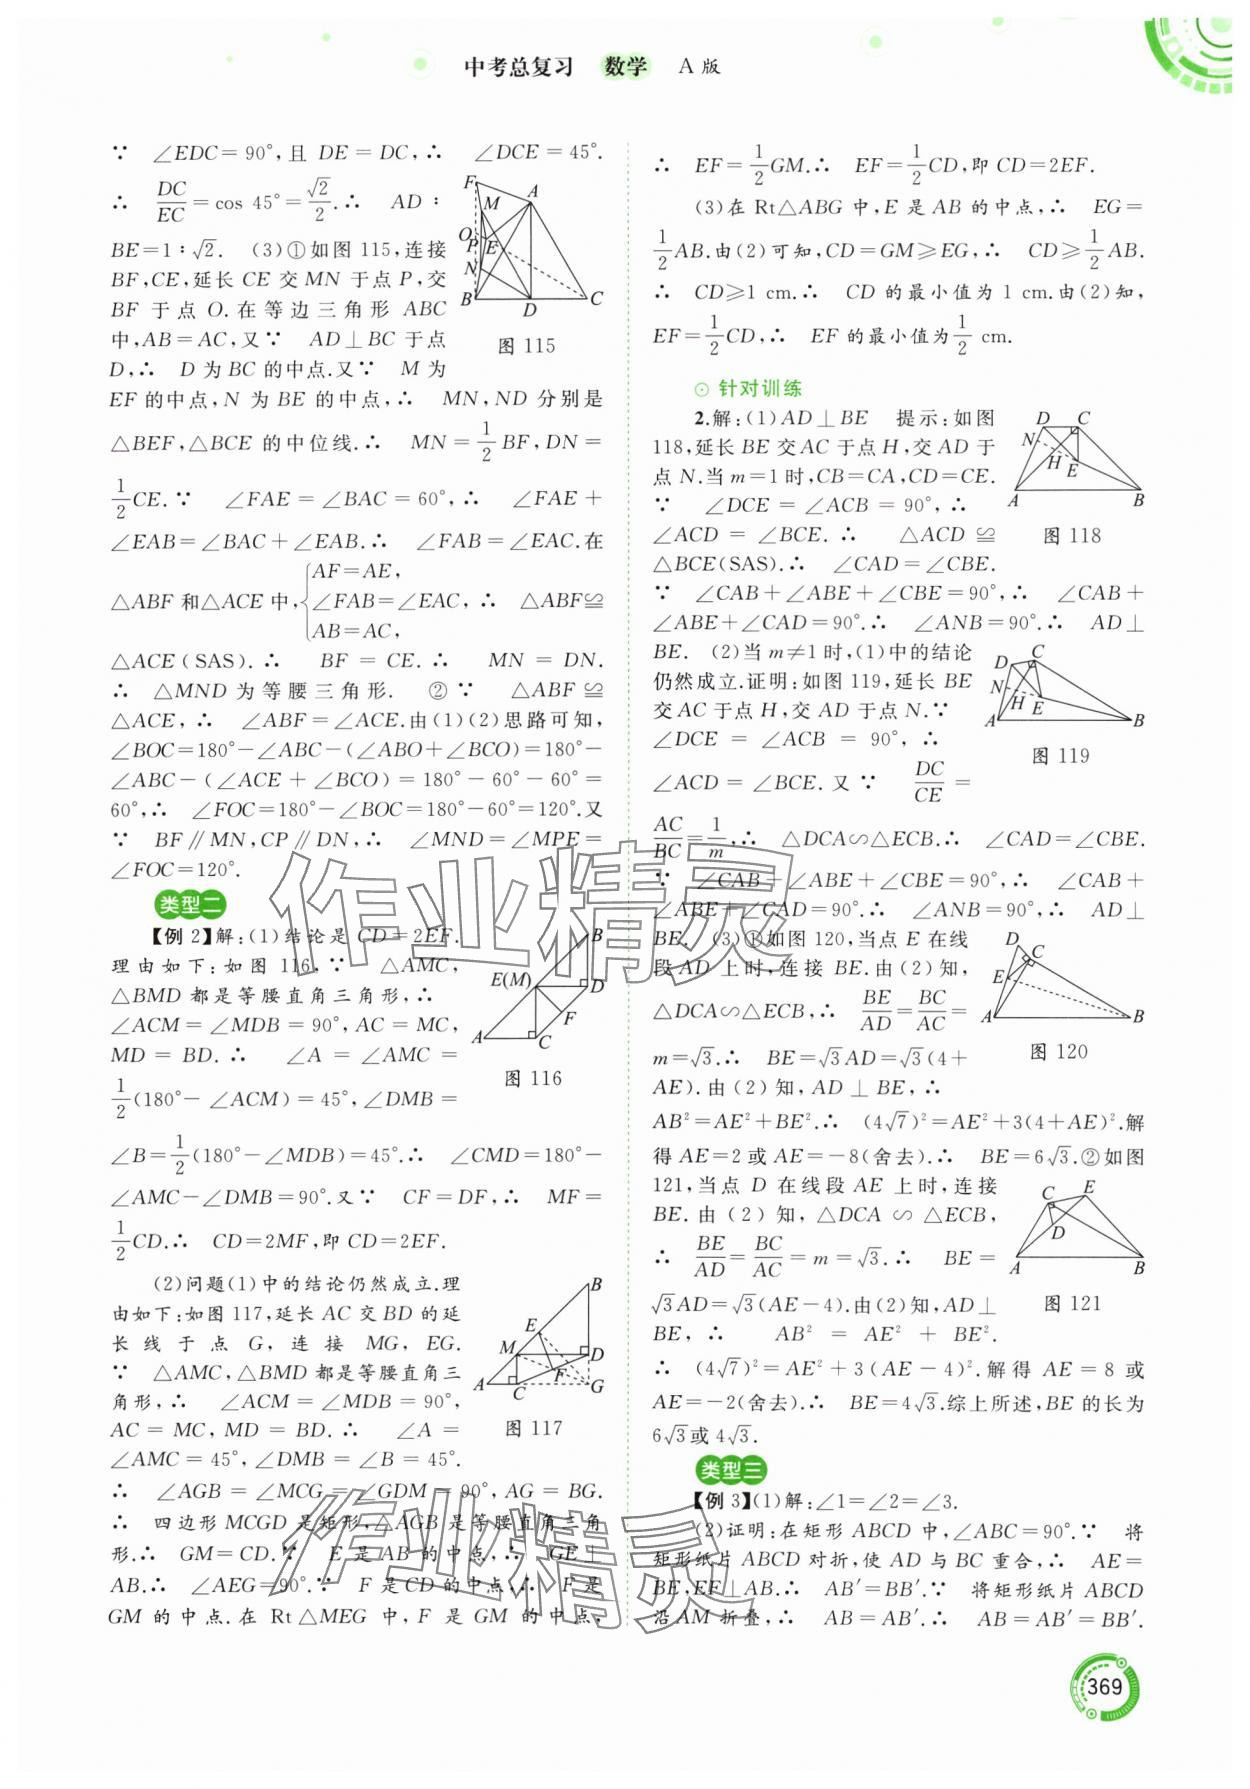 中考总复习 数学 A版
∵ ∠EDC=90°,且 DE=DC,∴ ∠DCE=45°.
∴ DC/EC=cos 45°=√2/2.∴ AD∶
BE=1∶√2. (3)①如图 115,连接
BF,CE,延长 CE 交 MN 于点 P,交
BF 于点 O.在等边三角形 ABC
中,AB=AC,又∵ AD⊥BC 于点
D,∴ D 为 BC 的中点.又∵ M 为
EF 的中点,N 为 BE 的中点,∴ MN,ND 分别是
△BEF,△BCE 的中位线.∴ MN=1/2BF,DN=
1/2CE.∵ ∠FAE=∠BAC=60°,∴ ∠FAE+
∠EAB=∠BAC+∠EAB.∴ ∠FAB=∠EAC.在
△ABF 和△ACE 中,{AF=AE,
∠FAB=∠EAC,∴ △ABF≌
AB=AC,
△ACE(SAS).∴ BF=CE.∴ MN=DN.
∴ △MND 为等腰三角形. ②∵ △ABF≌
△ACE,∴ ∠ABF=∠ACE.由(1)(2)思路可知,
∠BOC=180°-∠ABC-(∠ABO+∠BCO)=180°-
∠ABC-(∠ACE+∠BCO)=180°-60°-60°=
60°,∴ ∠FOC=180°-∠BOC=180°-60°=120°.又
∵ BF∥MN,CP∥DN,∴ ∠MND=∠MPE=
∠FOC=120°.
F A M O P E N B D C
图 115
类型二
【例 2】解:(1)结论是 CD=2EF.
理由如下:如图 116,∵ △AMC,
△BMD 都是等腰直角三角形,∴
∠ACM=∠MDB=90°,AC=MC,
MD=BD.∴ ∠A=∠AMC=
1/2(180°-∠ACM)=45°,∠DMB=
∠B=1/2(180°-∠MDB)=45°.∴ ∠CMD=180°-
∠AMC-∠DMB=90°.又∵ CF=DF,∴ MF=
1/2CD.∴ CD=2MF,即 CD=2EF.
B E(M) D F A C
图 116
(2)问题(1)中的结论仍然成立.理
由如下:如图 117,延长 AC 交 BD 的延
长线于点 G,连接 MG,EG.
∵ △AMC,△BMD 都是等腰直角三
角形,∴ ∠ACM=∠MDB=90°,
AC=MC,MD=BD.∴ ∠A=
∠AMC=45°,∠DMB=∠B=45°.
∴ ∠AGB=∠MCG=∠GDM=90°,AG=BG.
∴ 四边形 MCGD 是矩形,△AGB 是等腰直角三角
形.∴ GM=CD.∵ E 是 AB 的中点,∴ GE⊥
AB.∴ ∠AEG=90°.∵ F 是 CD 的中点,∴ F 是
GM 的中点.在 Rt△MEG 中,F 是 GM 的中点,
B E M D F A C G
图 117
∴ EF=1/2GM.∴ EF=1/2CD,即 CD=2EF.
(3)在 Rt△ABG 中,E 是 AB 的中点,∴ EG=
1/2AB.由(2)可知,CD=GM≥EG,∴ CD≥1/2AB.
∴ CD≥1 cm.∴ CD 的最小值为 1 cm.由(2)知,
EF=1/2CD,∴ EF 的最小值为1/2 cm.
针对训练
2.解:(1)AD⊥BE 提示:如图
118,延长 BE 交 AC 于点 H,交 AD 于
点 N.当 m=1 时,CB=CA,CD=CE.
∵ ∠DCE=∠ACB=90°,∴
∠ACD=∠BCE.∴ △ACD≌
△BCE(SAS).∴ ∠CAD=∠CBE.
∵ ∠CAB+∠ABE+∠CBE=90°,∴ ∠CAB+
∠ABE+∠CAD=90°.∴ ∠ANB=90°.∴ AD⊥
BE. (2)当 m≠1 时,(1)中的结论
仍然成立.证明:如图 119,延长 BE
交 AC 于点 H,交 AD 于点 N.∵
∠DCE=∠ACB=90°,∴
∠ACD=∠BCE.又∵ DC/CE=
AC/BC=1/m,∴ △DCA∽△ECB.∴ ∠CAD=∠CBE.
∵ ∠CAB+∠ABE+∠CBE=90°,∴ ∠CAB+
∠ABE+∠CAD=90°.∴ ∠ANB=90°.∴ AD⊥
BE. (3)①如图 120,当点 E 在线
段 AD 上时,连接 BE.由(2)知,
△DCA∽△ECB,∴ BE/AD=BC/AC=
m=√3.∴ BE=√3AD=√3(4+
AE).由(2)知,AD⊥BE,∴
AB²=AE²+BE².∴ (4√7)²=AE²+3(4+AE)².解
得 AE=2 或 AE=-8(舍去).∴ BE=6√3.②如图
121,当点 D 在线段 AE 上时,连接
BE.由(2)知,△DCA∽△ECB,
∴ BE/AD=BC/AC=m=√3.∴ BE=
√3AD=√3(AE-4).由(2)知,AD⊥
BE,∴ AB²=AE²+BE².
∴ (4√7)²=AE²+3(AE-4)².解得 AE=8 或
AE=-2(舍去).∴ BE=4√3.综上所述,BE 的长为
6√3或 4√3.
D C N H E A B
图 118
D C N H E A B
图 119
D C E A B
图 120
C E D A B
图 121
类型三
【例 3】(1)解:∠1=∠2=∠3.
(2)证明:在矩形 ABCD 中,∠ABC=90°.∵ 将
矩形纸片 ABCD 对折,使 AD 与 BC 重合,∴ AE=
BE,EF⊥AB.∴ AB′=BB′.∵ 将矩形纸片 ABCD
沿 AM 折叠,∴ AB=AB′.∴ AB=AB′=BB′.
369
作业精灵
作业精灵